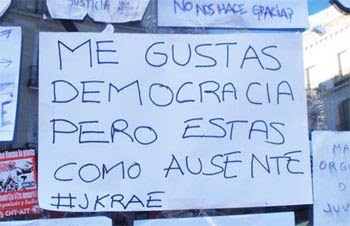 JUSTICIA
NO NOS HACE GRACIA?
ME GUSTAS
DEMOCRACIA
PERO ESTAS
COMO AUSENTE
#JKRAE
CNT-AIT
MA
ORG
DE
JUV